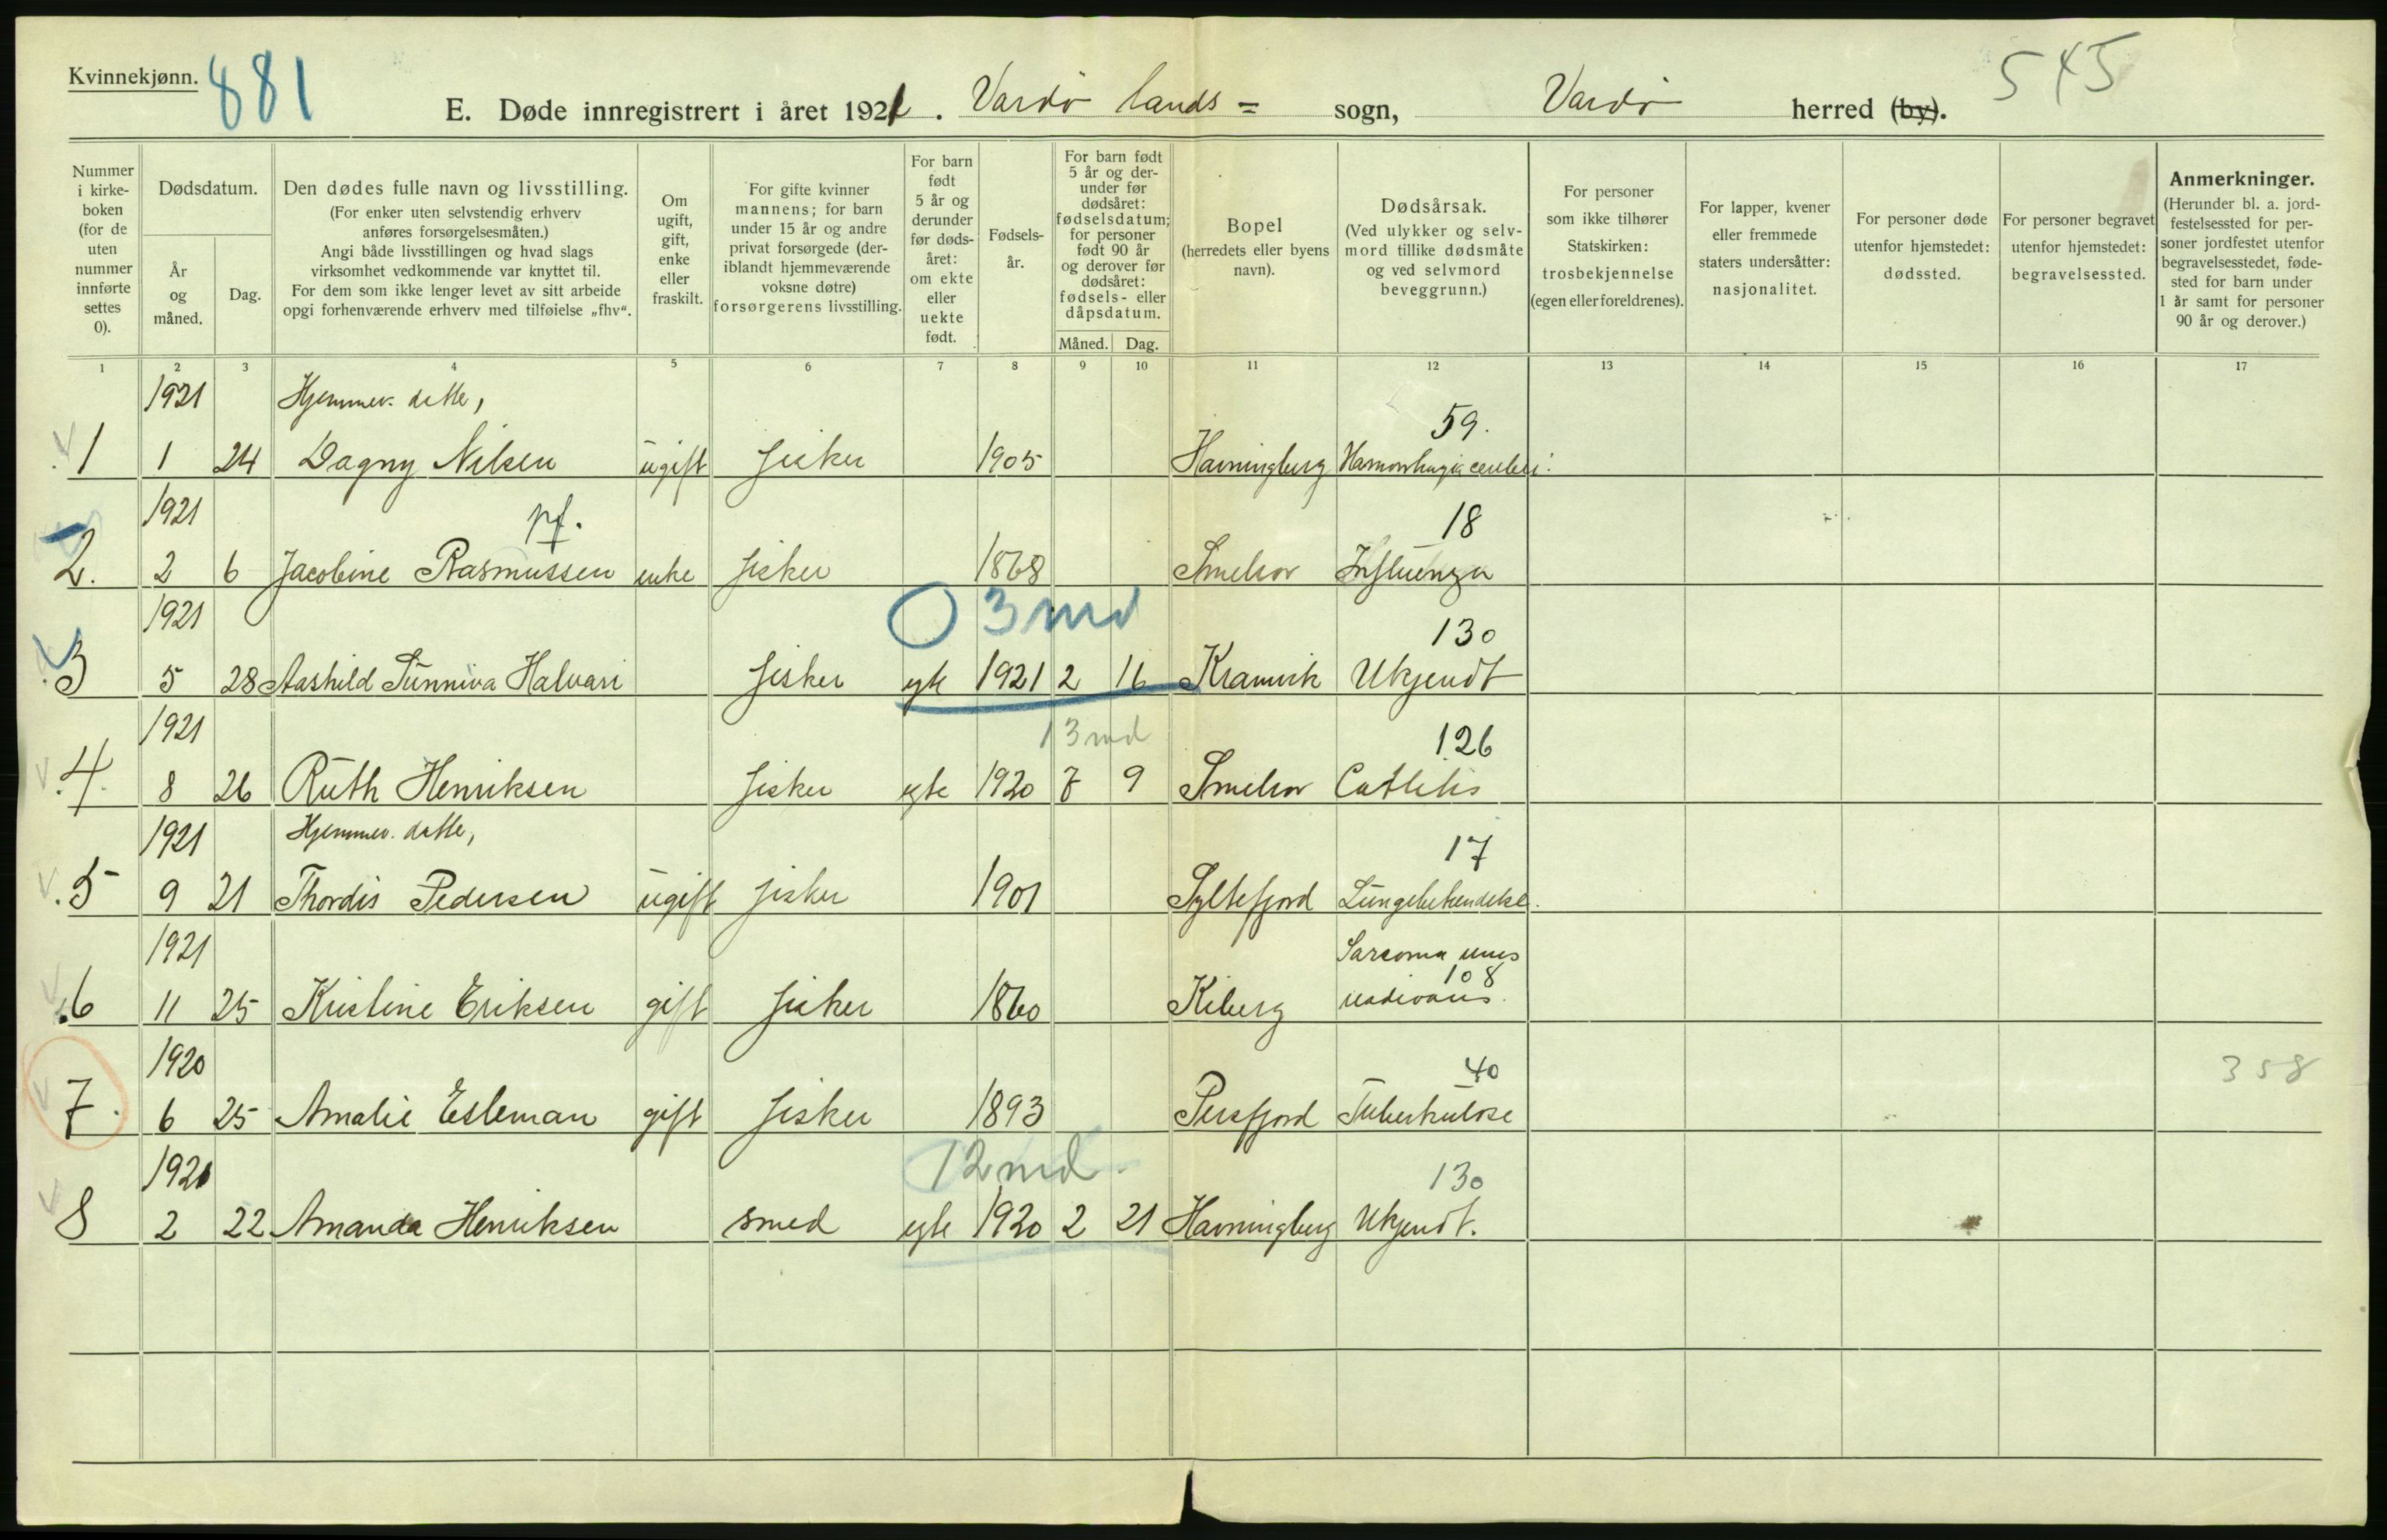 Kvinnekjønn. 881
545
E. Døde innregistrert i året 1921. Vardø lands= sogn, Vardø herred (by).
Nummer i kirke-boken (for de uten nummer innførte settes 0).
Dødsdatum.
År og måned.
Dag.
Den dødes fulle navn og livsstilling.
(For enker uten selvstendig erhverv
anføres forsørgelsesmåten.)
Angi både livsstillingen og hvad slags
virksomhet vedkommende var knyttet til.
For dem som ikke lenger levet av sitt arbeide
opgi forhenværende erhverv med tilføielse „fhv“.
Om ugift, gift, enke eller fraskilt.
For gifte kvinner
mannens; for barn
under 15 år og andre
privat forsørgede (der-
iblandt hjemmeværende
voksne døtre)
forsørgerens livsstilling.
For barn
født
5 år og
derunder
før døds-
året:
om ekte
eller
uekte
født.
Fødsels-
år.
For barn født
5 år og der-
under før
dødsåret:
fødselsdatum;
for personer
født 90 år
og derover før
dødsåret:
fødsels- eller
dåpsdatum.
Måned. Dag.
Bopel
(herredets eller byens
navn).
Dødsårsak.
(Ved ulykker og selv-
mord tillike dødsmåte
og ved selvmord
beveggrunn.)
For personer
som ikke tilhører
Statskirken:
trosbekjennelse
(egen eller foreldrenes).
For lapper, kvener
eller fremmede
staters undersåtter:
nasjonalitet.
For personer døde
utenfor hjemstedet:
dødssted.
For personer begravet
utenfor hjemstedet:
begravelsessted.
Anmerkninger.
(Herunder bl. a. jord-
festelsessted for per-
soner jordfestet utenfor
begravelsesstedet, føde-
sted for barn under
1 år samt for personer
90 år og derover.)
1 2 3 4 5 6 7 8 9 10 11 12 13 14 15 16 17
1921 Hjemmev. datter, 59.
1 1 24 Dagny Nilsen ugift fisker 1905 Havningberg
1921 pf. 18
2. 2 6 Jacobine Rasmussen enke fisker 1868 Smelror Influenza
1921 0 3 md 130
3 5 28 Aashild Sunniva Halvari fisker egte 1921 2 16 Kramvik Ukjendt
1921 13 md 126
4. 8 26 Ruth Henriksen fisker egte 1920 7 9 Smelror
1921 Hjemmev. datter, 17
5 9 21 Thordis Pedersen ugift fisker 1901 Syltefjord Lungebetændelse.
1921 Sarcoma
108
6 11 25 Kristine Eriksen gift fisker 1860 Kiberg
1920 40 358
7. 6 25 Amalie Esleman gift fisker 1893 Persfjord Tuberkulose
1921 12 md 130
8 2 22 Amanda Henriksen smed egte 1920 2 21 Havningberg Ukjendt.